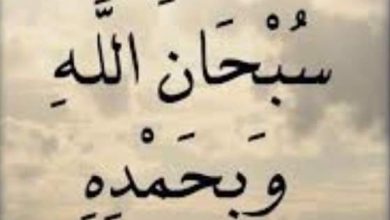 سُبْحَانَ اللَّهِ
وَبِحَمْدِهِ